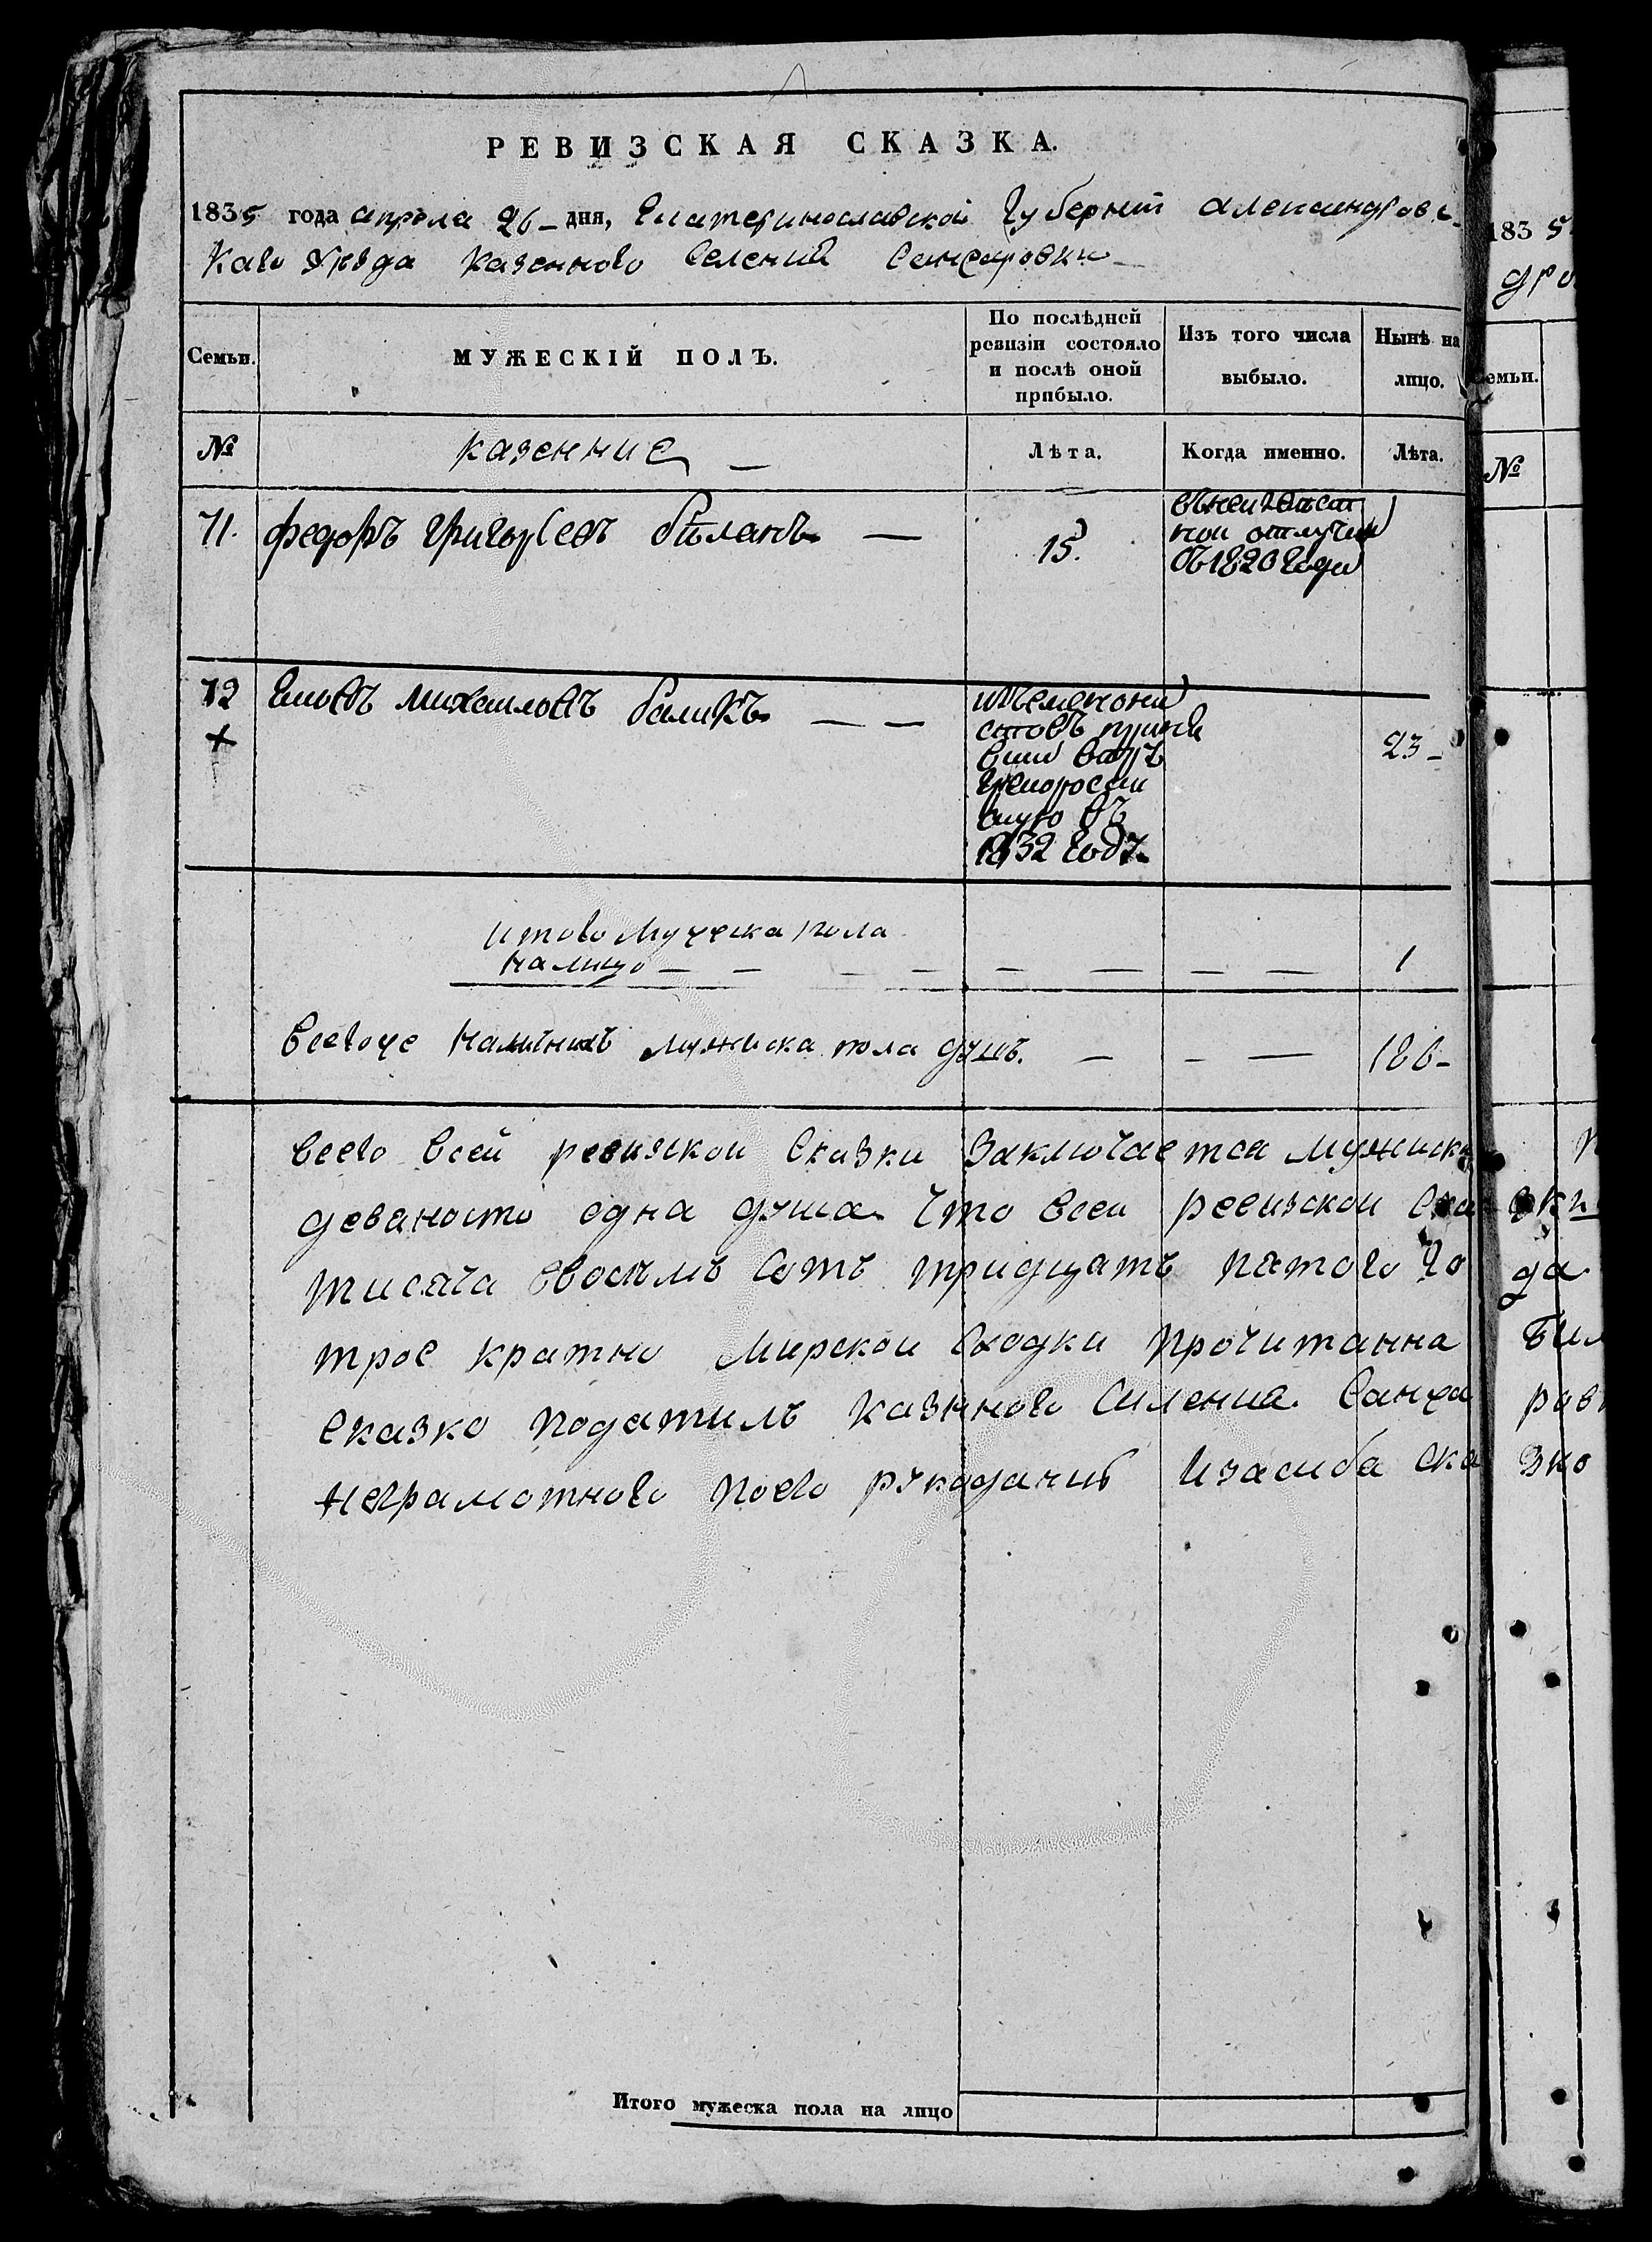 РЕВИЗСКАЯ СКАЗКА.
1835 года апреля 26 – дня, Екатеринославской Губернии александровс
каго уезда казенного Селения
Семьи. МУЖЕСКІЙ ПОЛЪ. По послѣдней ревизіи состояло и послѣ оной прибыло. Изъ того числа выбыло. Нынѣ на лицо.
№ казенние Лѣта. Когда именно. Лѣта.
71. федоръ григорьевъ біланъ — 15. отлучки
съ 1826 года
72 михаиловъ баликъ — — 23 –
+
въ
1832 годъ
итого мужеска пола
налицо — — — — — — — — 1
всегоже наличнихъ мужиска пола душъ. — – — 186 –
всего всей ревизской сказки заключается мужиска
деваносто една душа что всеи ревизской ска зки
тисяча восемъ сотъ тридцатъ пятого го да
трое кратно мирской сходки прочитанна бил
сказко податилъ казенного силения ров
неграмотного поего рукодачи изасиба ска зко
Итого мужеска пола на лицо
183 5
дро
Семьи.
№